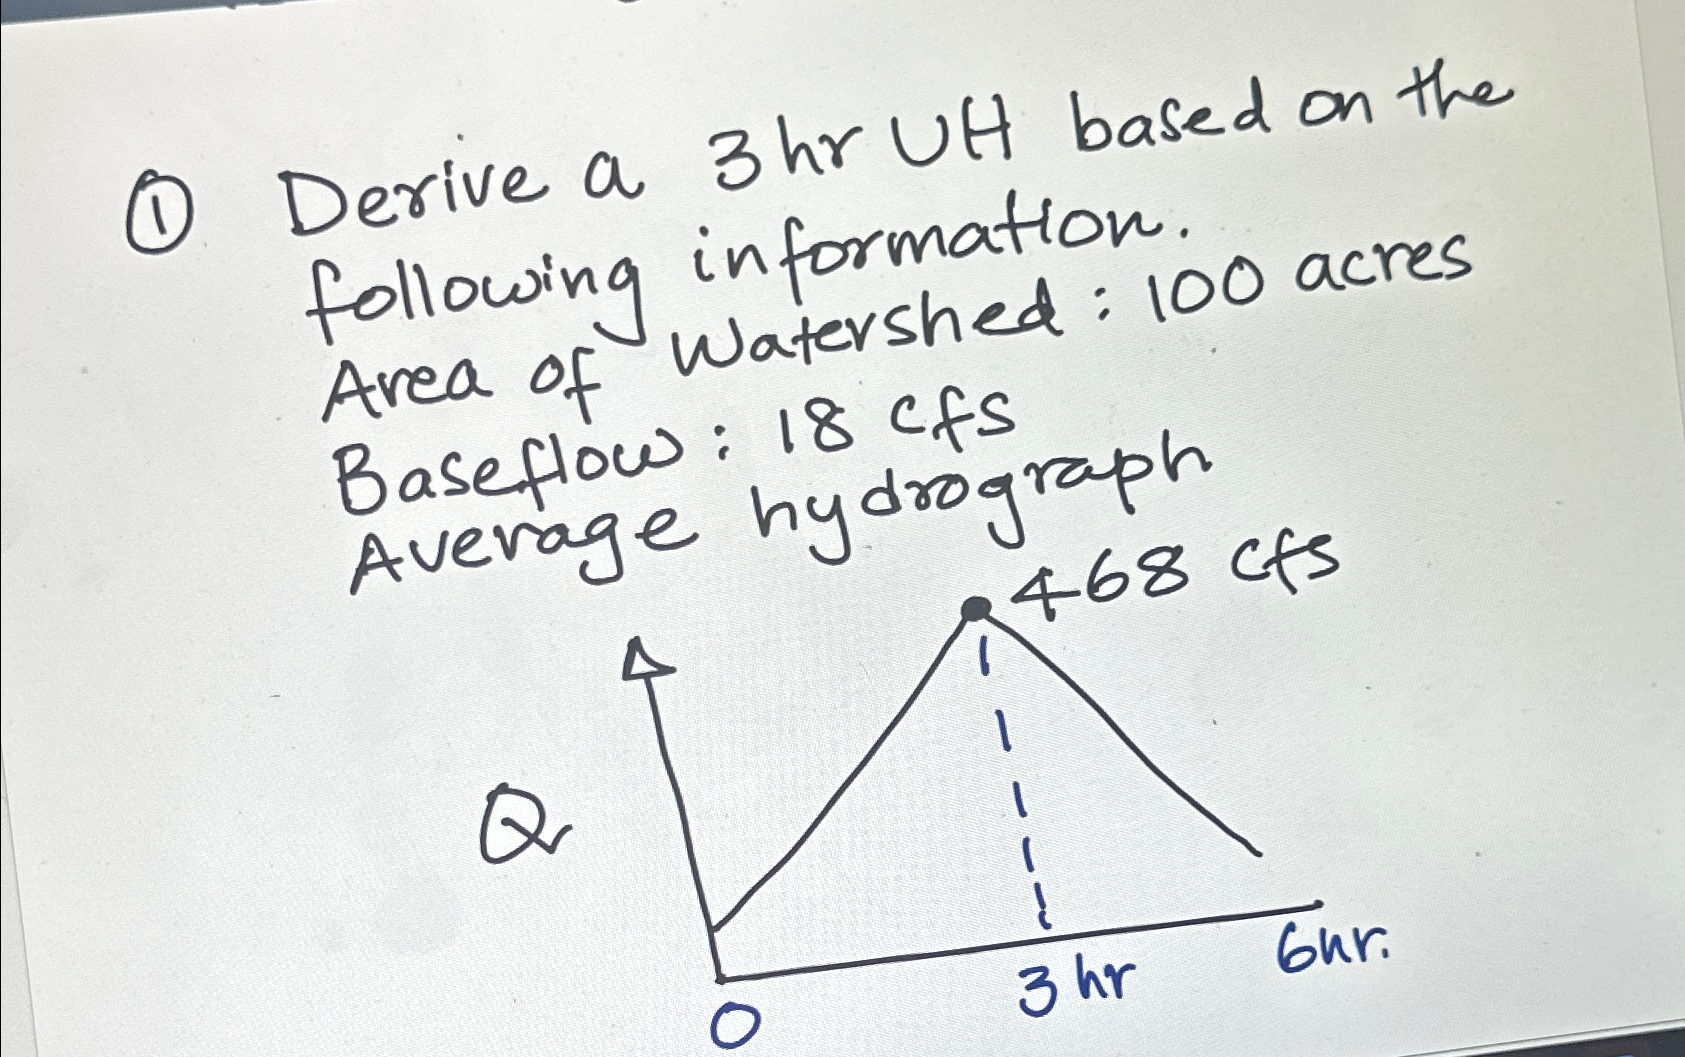 ① Derive a 3hr UH based on the
following information.
Area of Watershed: 100 acres
Baseflow: 18 cfs
Average hydrograph
468 cfs
Q
0
3 hr
6hr.